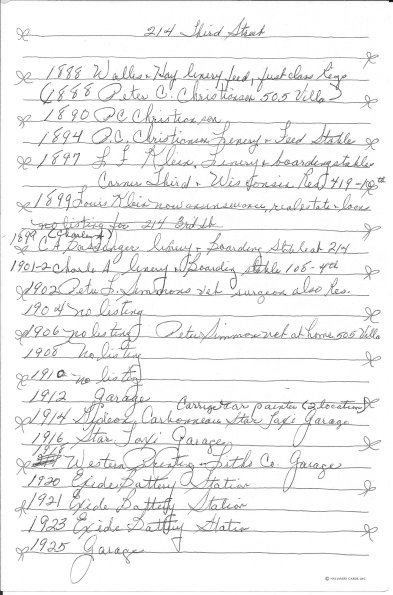 214 Third Street
1888 Walles & Hay livery feed, first class Rigs
(1888 Peter C. Christianson 505 Villa)
1890 P.C. Christianson
1894 P.C. Christianson Livery & Feed Stable
1897 L F Klein, Livery & boarding stable
Corner Third & Wisconsin Res 419-10th
1899 Louis Klein now an insurance, real estate & loans
no listing for 214 3rd St
1899 (Charles A)
C A livery & Boarding Stable at 214
1901-2 Charles A. livery & Boarding stable 108-4th
1902 Peter F. Simmons vet surgeon also Res.
1904 no listing
1906 no listing) Peter Simmon vet at home 505 Villa
1908 no listing
1910 no listing
1912 Garage
Carriage & car painter (2 locations)
1914 Gideon Carbonneau Star Taxi Garage
1916 Star Taxi Garage
1918
Western Printing & Litho Co. Garage
1920 Exide Battery Station
1921 Exide Battery Station
1923 Exide Battery Station
1925 Garage